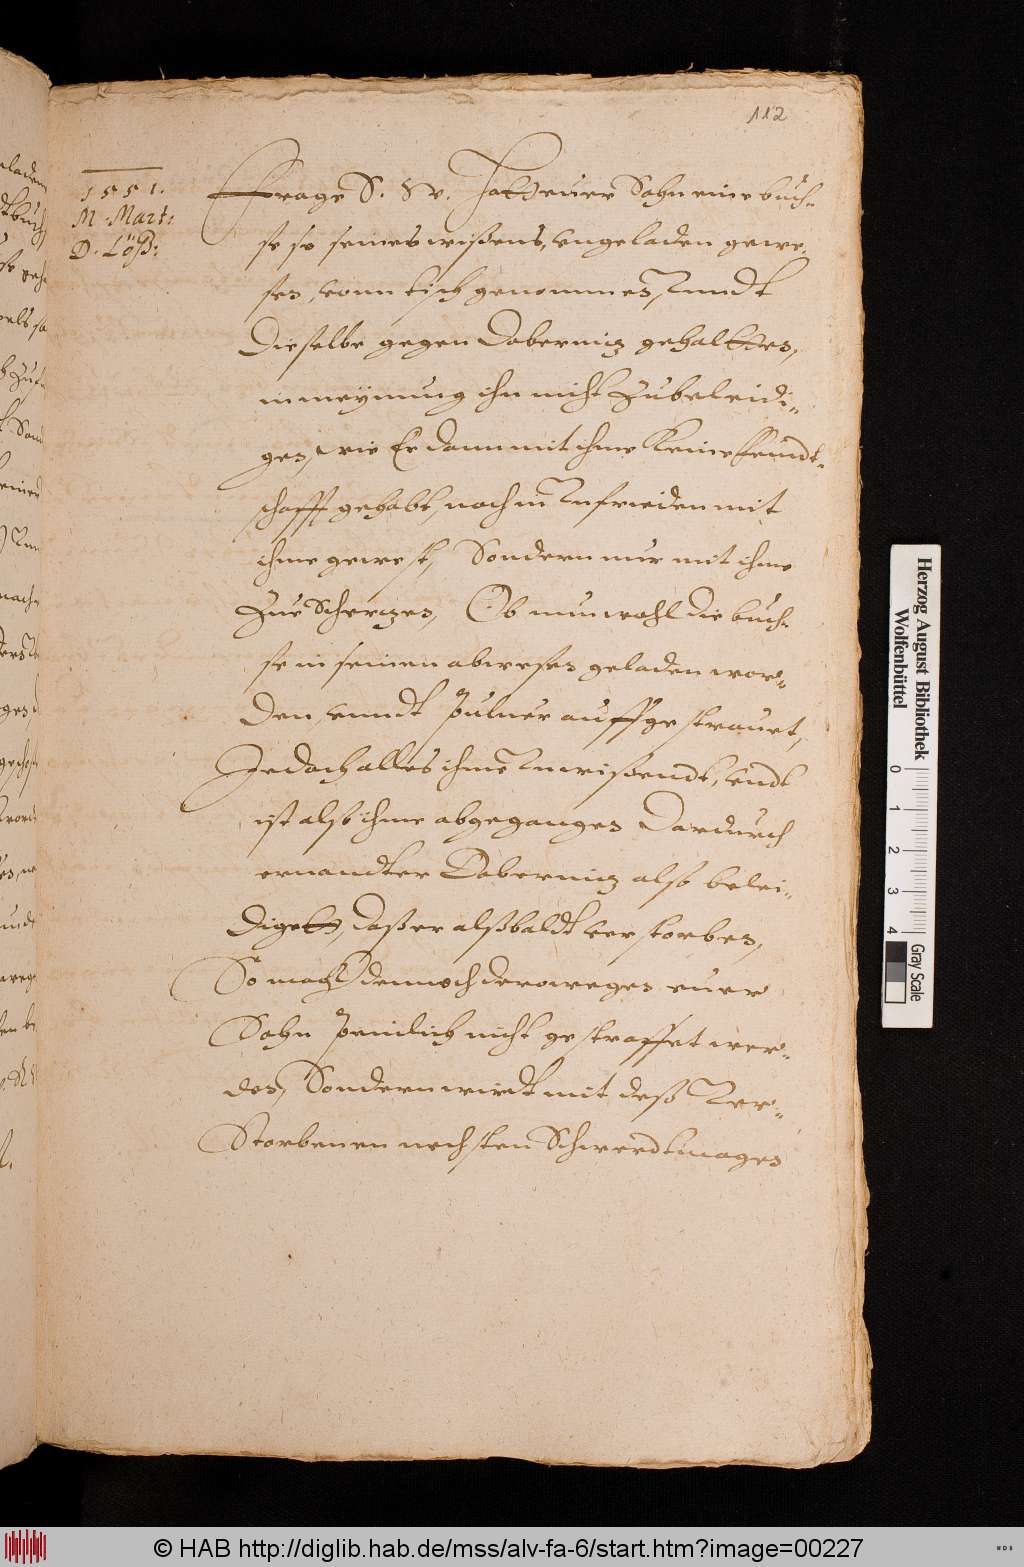 112
1551.
M. Mart:
D. Löß:
Frage S. &. v. Hatt euer Sohn eine buch-
se so seines wißens, ungeladen gewe-
sen, vonn tisch genommen, Unndt
Dieselbe gegen Daberniz gehaltten,
in meynung ihn nicht zubeleidi-
gen, wie Er dann mit ihme keine ffeindt-
schafft gehabt, noch in Unfrieden mit
ihme gewest, Sondern nur mit ihme
Zue Scherzen, Ob nun wohl die buch-
se in seinen abwesen geladen wor-
den, unndt Puluer auffgestrauet,
Jedoch alles ihme Unwißendt, Undt
ist alß ihme abgegangen Dardurch
ernandter Daberniz also belei-
diget, Daß er alßbaldt verstorben,
So mag dennoch deroweges euer
Sohn Peinlich nicht gestraffet wer-
den, Sondern wirdt mit deß Ver-
Storbenen nechsten Schwerdtmagen
Herzog August Bibliothek
Wolfenbüttel
0 1 2 3 4
Gray Scale
© HAB http://diglib.hab.de/mss/alv-fa-6/start.htm?image=00227